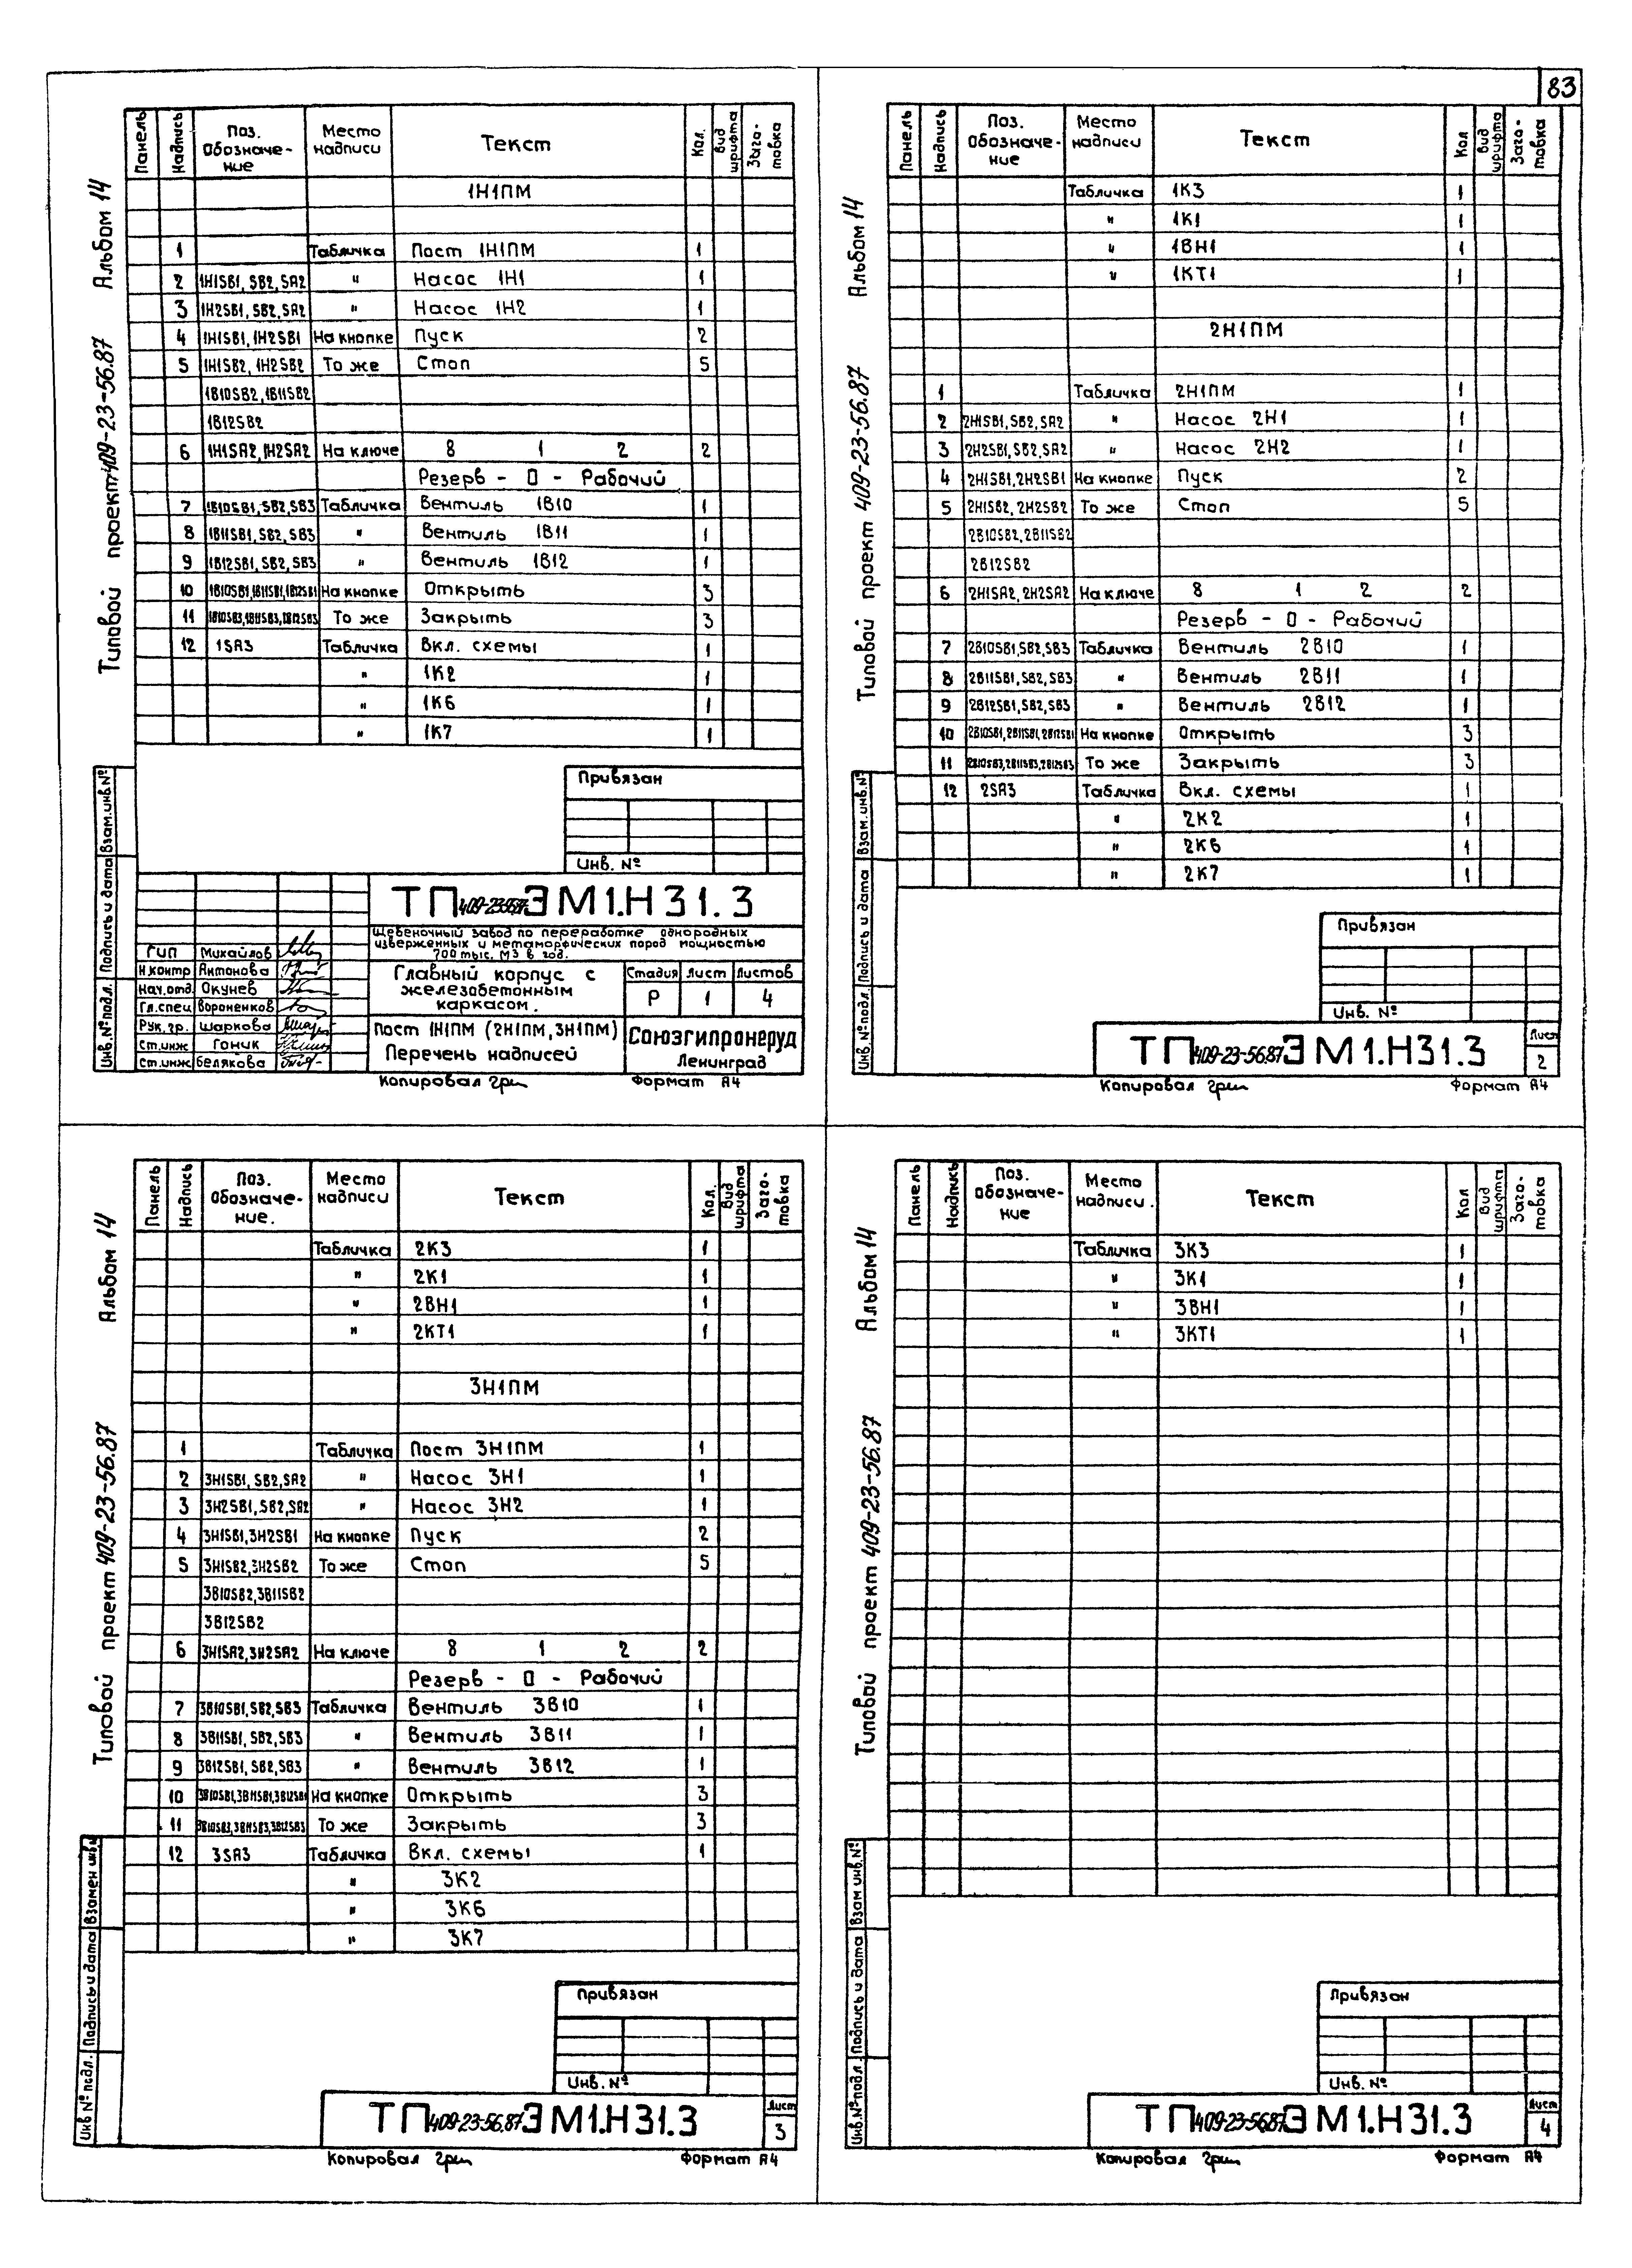 83
Альбом 14
Типовой проект 409-23-56.87
Панель | Надпись | Поз. Обозначе-ние | Место надписи | Текст | Кол. | Вид шрифта | Заго-товка
1Н1ПМ
1 Табличка Пост 1Н1ПМ 1
2 1Н1SB1, SB2, SA2 " Насос 1Н1 1
3 1Н2SB1, SB2, SA2 " Насос 1Н2 1
4 1Н1SB1, 1Н2SB1 На кнопке Пуск 2
5 1Н1SB2, 1Н2SB2 То же Стоп 5
1В10SB2, 1В11SB2
1В12SB2
6 1Н1SA2, 1Н2SA2 На ключе 8 1 2 2
Резерв - 0 - Рабочий
7 1В10SB1, SB2, SB3 Табличка Вентиль 1В10 1
8 1В11SB1, SB2, SB3 " Вентиль 1В11 1
9 1В12SB1, SB2, SB3 " Вентиль 1В12 1
10 1В10SB1, 1В11SB1, 1В12SB1 На кнопке Открыть 3
11 1В10SB3, 1В11SB3, 1В12SB3 То же Закрыть 3
12 1SA3 Табличка Вкл. схемы 1
" 1К2 1
" 1К6 1
" 1К7 1
Привязан
Инв. №
Взам. инв. №
Подпись и дата
Инв. № подл.
ТП 409-23-56.87 ЭМ1.Н31.3
Щебеночный завод по переработке однородных
изверженных и метаморфических пород мощностью
700 тыс. м3 в год.
ГИП Михайлов
Н.контр Антонова
Нач.отд. Окунев
Гл.спец Вороненков
Рук. гр. Шаркова
Ст.инж Гоник
Ст.инж. Белякова
Главный корпус с
железобетонным
каркасом.
Стадия Лист Листов
Р 1 4
Пост 1Н1ПМ (2Н1ПМ, 3Н1ПМ)
Перечень надписей
Союзгипронеруд
Ленинград
Копировал Грин Формат А4
Альбом 14
Типовой проект 409-23-56.87
Панель | Надпись | Поз. Обозначе-ние | Место надписи | Текст | Кол | Вид шрифта | Заго-товка
Табличка 1К3 1
" 1К1 1
" 1ВН1 1
" 1КТ1 1
2Н1ПМ
1 Табличка 2Н1ПМ 1
2 2Н1SB1, SB2, SA2 " Насос 2Н1 1
3 2Н2SB1, SB2, SA2 " Насос 2Н2 1
4 2Н1SB1, 2Н2SB1 На кнопке Пуск 2
5 2Н1SB2, 2Н2SB2 То же Стоп 5
2В10SB2, 2В11SB2
2В12SB2
6 2Н1SA2, 2Н2SA2 На ключе 8 1 2 2
Резерв - 0 - Рабочий
7 2В10SB1, SB2, SB3 Табличка Вентиль 2В10 1
8 2В11SB1, SB2, SB3 " Вентиль 2В11 1
9 2В12SB1, SB2, SB3 " Вентиль 2В12 1
10 2В10SB1, 2В11SB1, 2В12SB1 На кнопке Открыть 3
11 2В10SB3, 2В11SB3, 2В12SB3 То же Закрыть 3
12 2SA3 Табличка Вкл. схемы 1
" 2К2 1
" 2К6 1
" 2К7 1
Привязан
Инв. №
Взам. инв. №
Подпись и дата
Инв. № подл.
ТП 409-23-56.87 ЭМ1.Н31.3
Лист
2
Копировал Грин Формат А4
Альбом 14
Типовой проект 409-23-56.87
Панель | Надпись | Поз. Обозначе-ние. | Место надписи | Текст | Кол. | Вид шрифта | Заго-товка
Табличка 2К3 1
" 2К1 1
" 2ВН1 1
" 2КТ1 1
3Н1ПМ
1 Табличка Пост 3Н1ПМ 1
2 3Н1SB1, SB2, SA2 " Насос 3Н1 1
3 3Н2SB1, SB2, SA2 " Насос 3Н2 1
4 3Н1SB1, 3Н2SB1 На кнопке Пуск 2
5 3Н1SB2, 3Н2SB2 То же Стоп 5
3В10SB2, 3В11SB2
3В12SB2
6 3Н1SA2, 3Н2SA2 На ключе 8 1 2 2
Резерв - 0 - Рабочий
7 3В10SB1, SB2, SB3 Табличка Вентиль 3В10 1
8 3В11SB1, SB2, SB3 " Вентиль 3В11 1
9 3В12SB1, SB2, SB3 " Вентиль 3В12 1
10 3В10SB1, 3В11SB1, 3В12SB1 На кнопке Открыть 3
11 3В10SB3, 3В11SB3, 3В12SB3 То же Закрыть 3
12 3SA3 Табличка Вкл. схемы 1
" 3К2
" 3К6
" 3К7
Привязан
Инв. №
Взамен инв.
Подпись и дата
Инв № подл.
ТП 409-23-56.87 ЭМ1.Н31.3
Лист
3
Копировал Грин Формат А4
Альбом 14
Типовой проект 409-23-56.87
Панель | Надпись | Поз. Обозначе-ние | Место надписи. | Текст | Кол | Вид шрифта | Заго-товка
Табличка 3К3 1
" 3К1 1
" 3ВН1 1
" 3КТ1 1
Привязан
Инв. №
Взам инв. №
Подпись и дата
Инв. № подл.
ТП 409-23-56.87 ЭМ1.Н31.3
Лист
4
Копировал Грин Формат А4